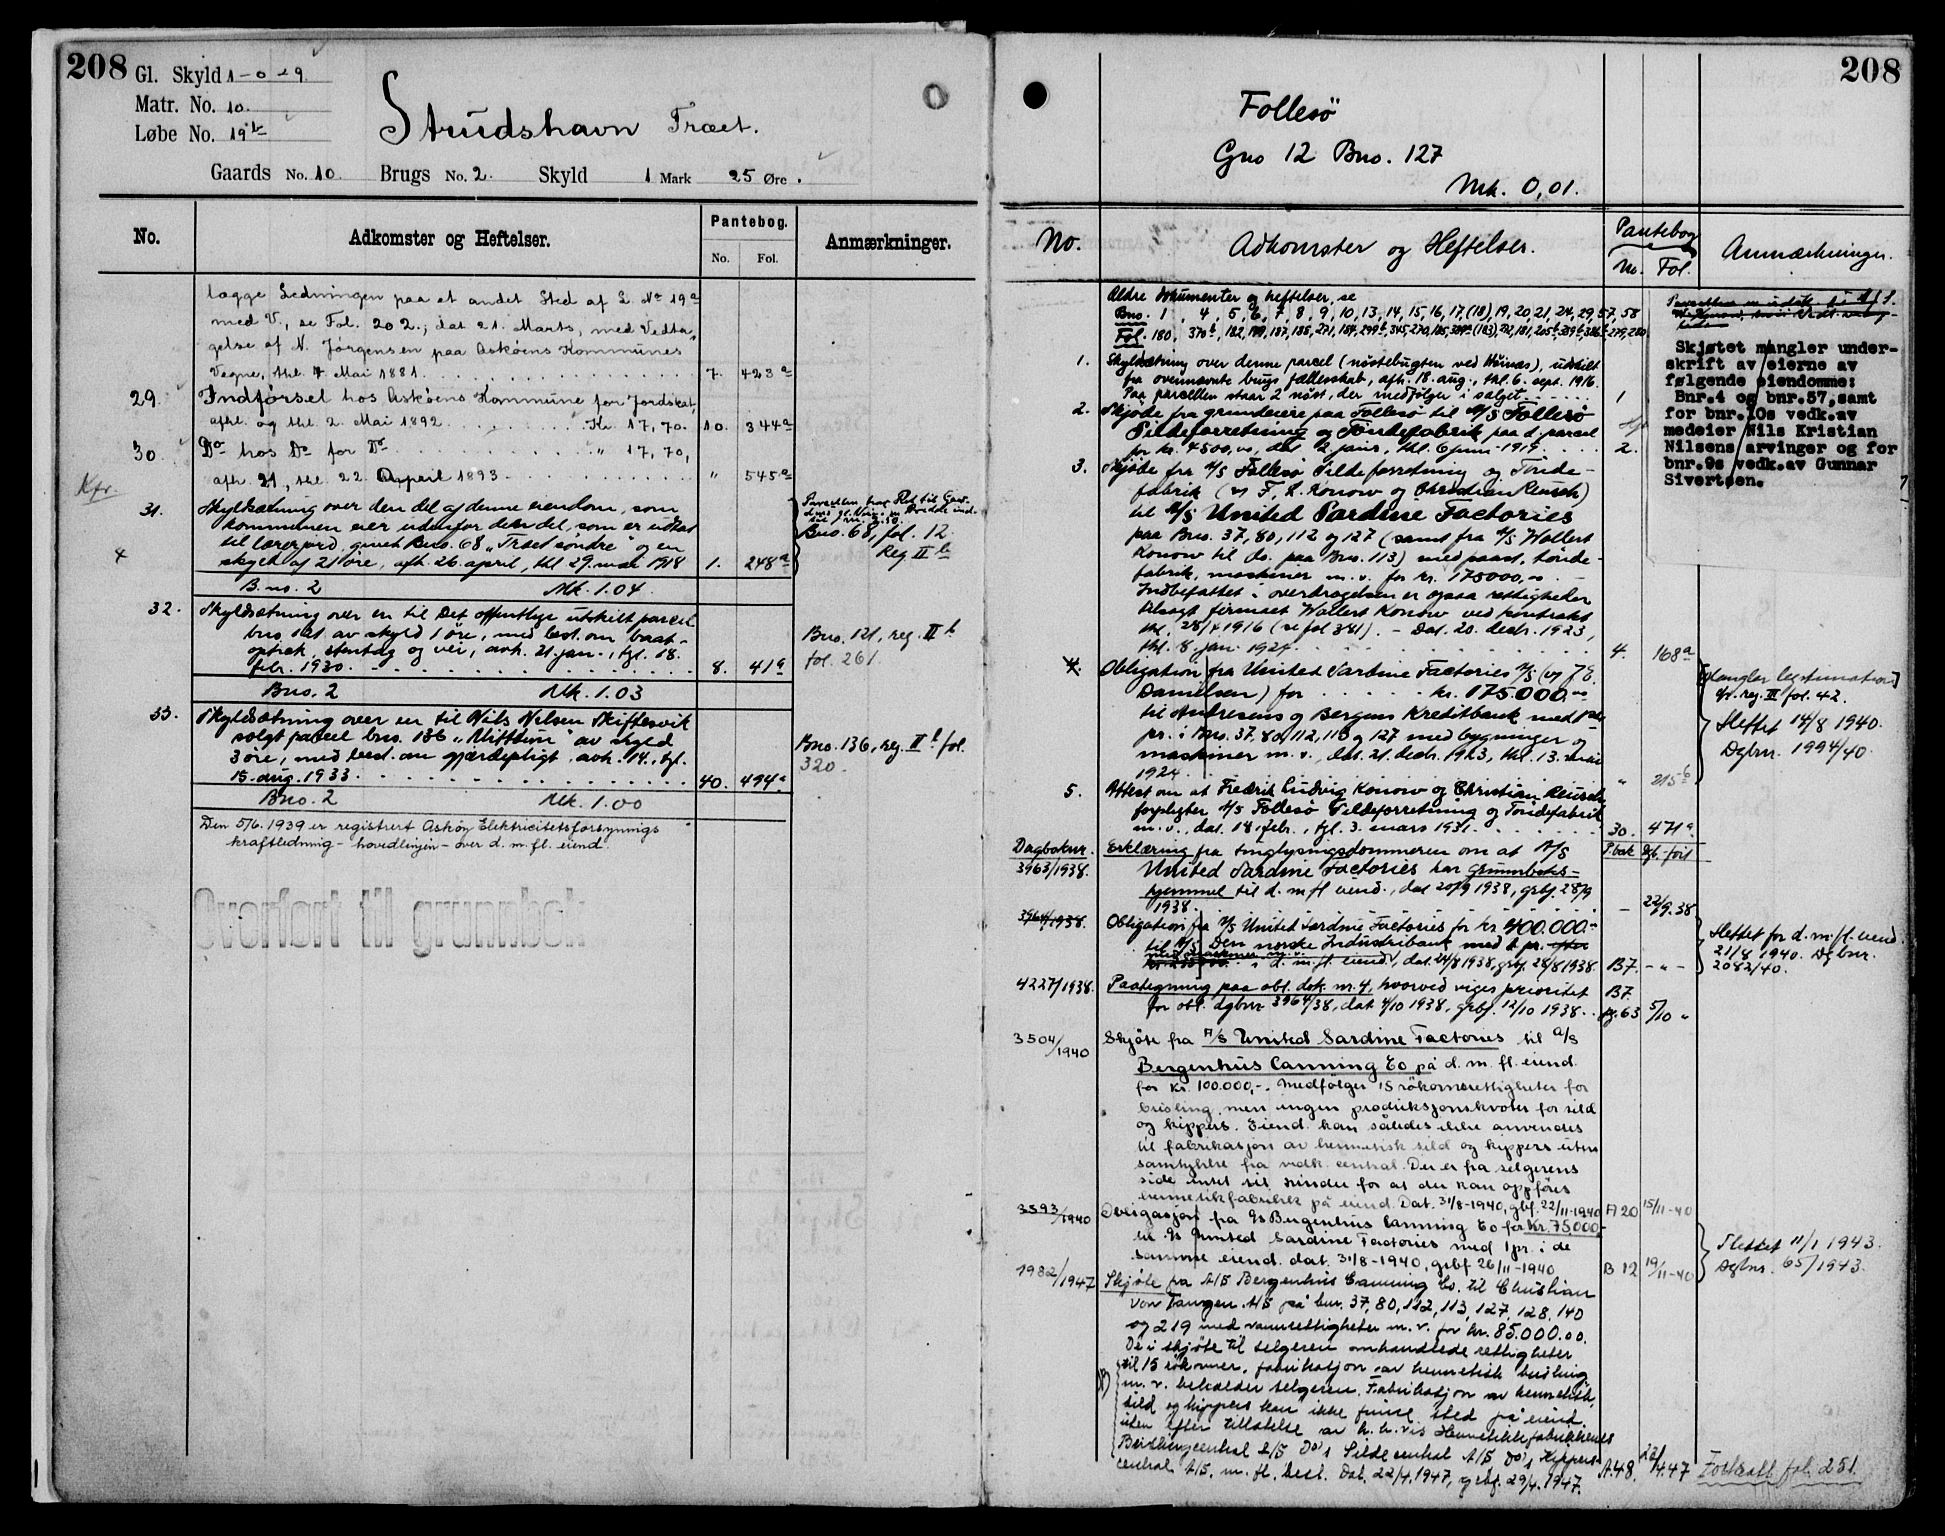 208
Gl. Skyld 1-0-19.
Matr. No. 10.
Løbe No. 19b
Strudshavn Træet.
Gaards No. 10. Brugs No. 2. Skyld 1 Mark 25 Øre.
No. Adkomster og Heftelser. Pantebog. No. Fol. Anmærkninger.
lægge Ledningen paa et andet Sted af L. No 19a
med V., se Fol. 202., dat 21. Marts, med Vedta-
gelse af N. Jørgensen paa Askøens Kommunes
Vegne, thl. 7 Mai 1881. 7. 423a
29. Indførsel hos Askøens Kommune for Jordskat,
afh. og thl. 2. Mai 1892 Kr. 17,70. 10. 344a
30. Do hos Do for Do " 17,70,
afh. 21, thl. 22 April 1893. " 545a
Kfr.
31. Skyldsætning over den del af denne eiendom, som
kommunen eier udenfor den del, som er udlat
til lærerjord, givet Bno. 68 "Træet søndre" og en
skyld af 21 øre, afh. 26. april, thl 29. mai 1918 1. 248a
Bno. 68, fol. 12.
Reg II b
B. no. 2 Mk. 1.04.
32. Skyldsætning over en til Det offentlige utskilt parcel
bno. 121 av skyld 1 øre, med best. om baat-
optræk, stentag og vei, avh. 21. jan., tgl. 18.
febr. 1930. 8. 41a
Bno. 121, reg. II b
fol. 261.
Bno. 2 Mk. 1.03
33. Skyldsætning over en til Nils Nilsen Skiftesvik
solgt parcel bno. 136 av skyld
3 øre, med best. om gjærdepligt. avh. 14., tgl.
15. aug. 1933. 40. 494a
Bno. 136, reg. II b fol.
320.
Bno. 2 Mk. 1.00
Den 5/6. 1939 er registrert Askøy Elektricitetsforsynings
kraftledning - hovedlinjen - over d. m. fl. eiend.
Overført til grunnbok
208
Follesö
Gno 12 Bno. 127
Mk. 0,01.
No. Adkomster og Heftelser. Pantebog No. Fol. Anmærkninger.
Ældre dokumenter og heftelser, se
Bno. 1, 4, 5, 6, 7, 8, 9, 10, 13, 14, 15, 16, 17, (18), 19, 20, 21, 24, 29, 57, 58
Fol. 180,
1. Skyldsætning over denne parcel (nöstebugten ved ), udskilt
fra ovennævnte brugs fællesskab, afh. 18. aug., thl. 6. sept. 1916.
Paa parcellen staar 2 nöst, der medfölger i salget. 1
2. Skjöde fra grundeiere paa Follesö til A/S Follesö
Sildeforretning og Töndefabrik paa d. parcel
for kr. 4500,00, dat. 2 juni, thl. 6 juni 1919. 2.
Skjøtet mangler under-
skrift av eierne av
følgende eiendomme:
Bnr.4 og bnr.57, samt
for bnr.10s vedk.av
medeier Nils Kristian
Nilsens arvinger og for
bnr.9s vedk.av Gunnar
Sivertsen.
3. Skjöde fra A/S Follesö Sildeforretning og Tönde-
fabrik (v/ F. L. Konow og Christian Reusch)
til A/S United Sardine Factories
paa Bno. 37, 80, 112 og 127 (samt fra A/S Wollert
Konow til do. paa Bno. 113) med paast. tönde-
fabrik, maskiner m. v. for kr. 175000,00.
Indbefattet i overdragelsen er ogsaa rettigheder
tilsagt firmaet Wollert Konow ved kontrakt
thl. 28/4 1916 (se fol 381). - Dat. 20. decbr. 1923,
thl. 8. jan. 1924. 4. 168a
4. Obligation fra United Sardine Factories A/S (v/ J. E.
Danielsen) for kr. 175.000.00
til Andresens og Bergens Kreditbank med 1ste
pr. i Bno. 37, 80, 112, 113 og 127 med bygninger og
maskiner m. v., dat. 21. decbr. 1923, thl. 13. mai
1924. " 215b
[Mangler legitimation]
cfr. reg. II fol. 42.
Slettet 14/8 1940.
Dgbnr. 1994/40.
5. Attest om at Fredrik Ludvig Konow og Christian Reusch
forpligter A/S Follesö Sildeforretning og Töndefabrik
m. v., dat. 18. febr., tgl. 3. mars 1931. 30. 471a
Dagboknr. P.bok Dgb.-ført
3963/1938. Erklæring fra tinglysningsdommeren om at A/S
United Sardine Factories har grunnboks-
hjemmel til d. m fl eiend., dat 20/9 1938, grbf. 28/9
1938. - 22/9.38
3964/1938. Obligation fra A/S United Sardine Factories for kr. 400.000.-
til A/S Den norske Industribank med 1 pr. efter
i d. m. fl. eiend., dat. 24/8 1938, grbf. 28/8 1938. B7. - " -
Slettet for d. m. fl. eiend.
21/8 1940. Dgbnr.
2082/40.
4227/1938. Paategning paa obl. dok. nr. 4, hvorved viges prioritet
for obl. dgbnr 3964/38, dat 4/10 1938, grbf. 12/10 1938. B7. pg. 63 5/10 "
3504/1940 Skjøte fra A/S United Sardine Factories til A/S
Bergenhus Canning Co på d. m. fl. eiend.
for kr. 100.000,-. Medfølger 15 røkovnsrettigheter for
brisling, men ingen produksjonskvoter for sild
og kippers. Eiend. kan således ikke anvendes
til fabrikasjon av hermetisk sild og kippers uten
samtykke fra vedk. central. Der er fra selgerens
side intet til hinder for at der kan oppføres
hermetikkfabrikk på eiend. Dat. 31/8-1940, grbf. 22/11-1940 A 20 15/11-40
3593/1940 Obligasjon fra A/S Bergenhus Canning Co for kr. 75.000,-
til A/S United Sardine Factories med 1 pr. i de
samme eiend. dat. 31/8-1940, grbf 26/11-1940 B 12 19/11-40
Slettet 11/1 1943.
Dgbnr. 65/1943.
1982/1947 Skjøte fra A/S Bergenhus Canning Co. til Christian
von Tangen A/S på bnr. 37, 80, 112, 113, 127, 128, 140
og 219 med vannrettigheter m. v. for kr. 85.000.00.
De i skjøte til selgeren omhandlede rettigheter
til 15 røkovner, fabrikasjon av hermetisk brisling
m. v. beholder selgeren. Fabrikasjon av hermetisk
sild og kippers kan ikke finne sted på eiend.
uten efter tillatelse av h. h. vis Hermetikkfabrikkenes
Brislingcentral A/S Do's Sildecentral A/S Do's Kippers-
central A/S, m. fl. best. Dat. 22/4. 1947, grbf. 29/4. 1947. A48. 22/4.47
Fortsatt fol. 251.